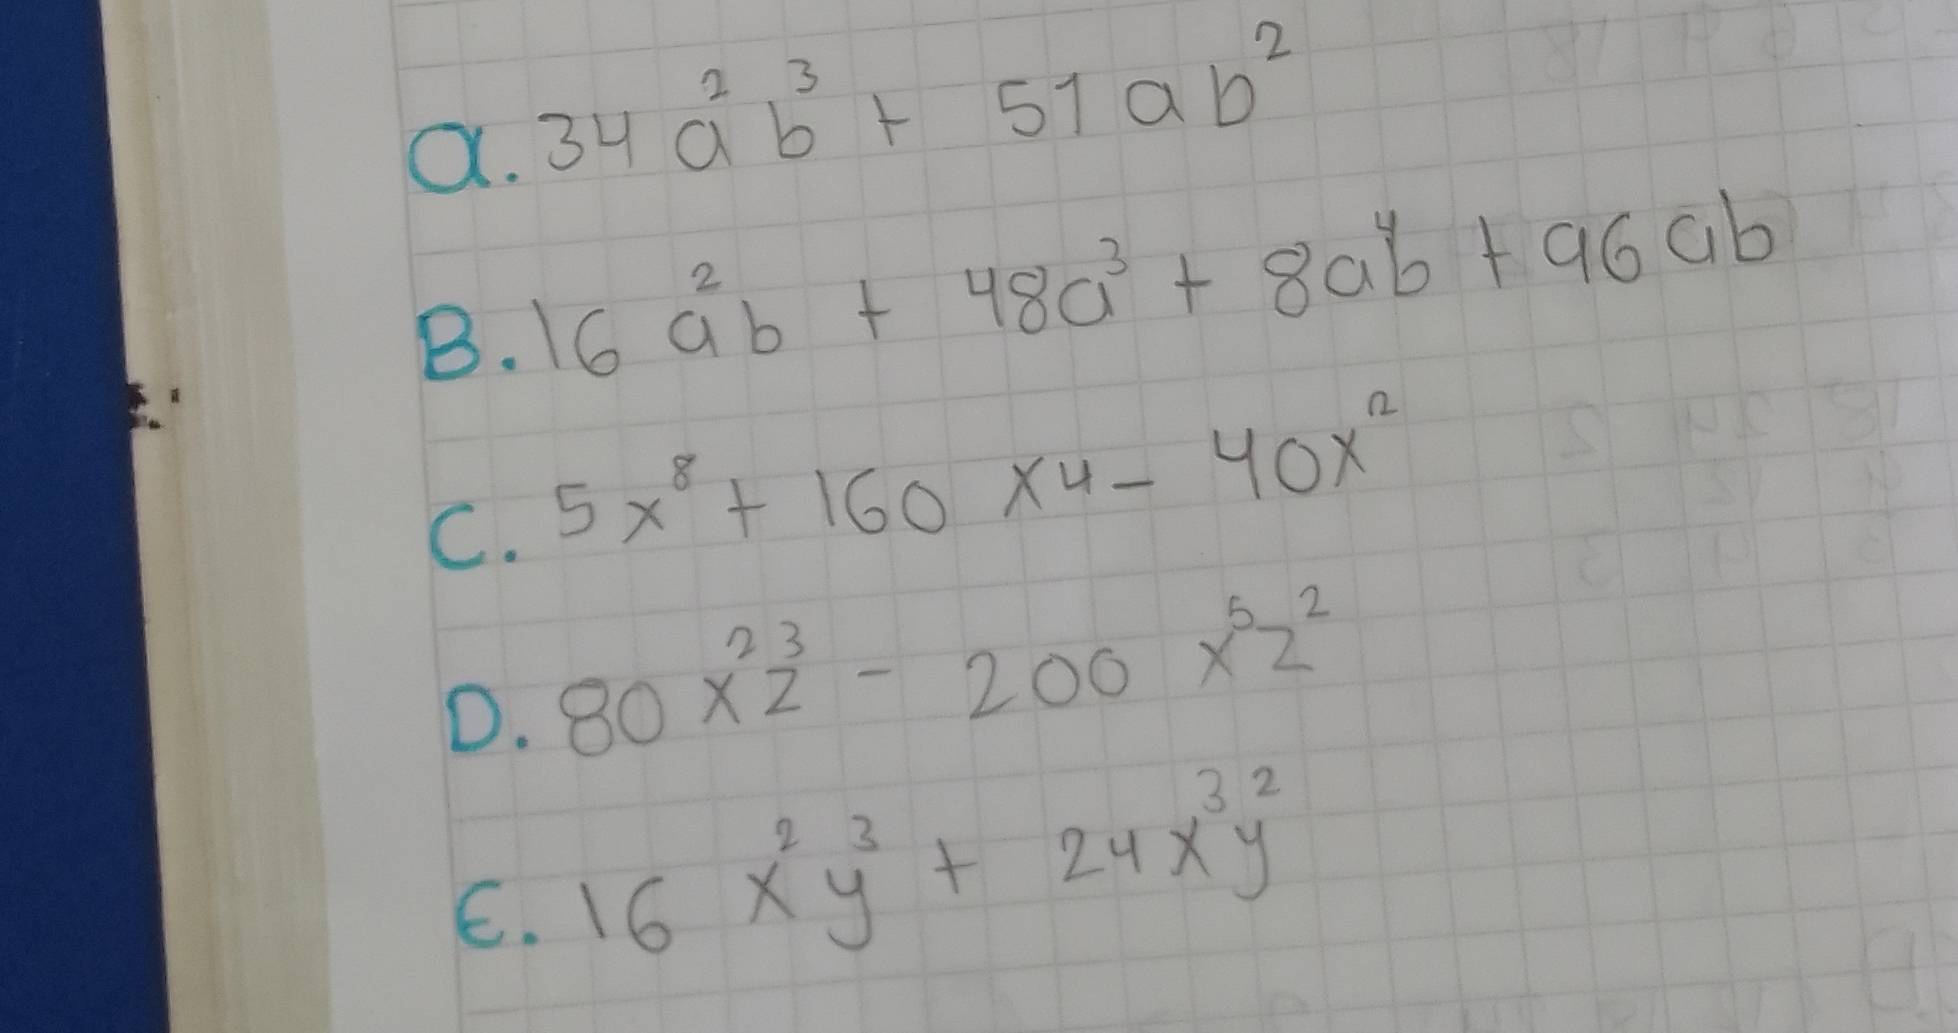 a. 34 a² b³ + 51 ab²
B. 16 a² b + 48a³ + 8a⁴b + 96 ab
C. 5x⁸ + 160 x4 - 40x²
D. 80 x² z³ - 200 x⁵z²
E. 16 x² y³ + 24x³y²